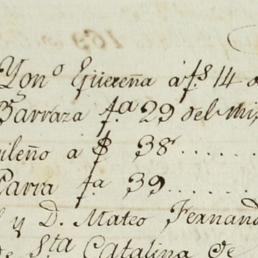 Ygn.º Güereña á f.s 14 d
Barraza f.a 29 del mis
ileño á $ 38......
Parra f.a 39......
l y D. Mateo Fernand
de S.ta Catalina de